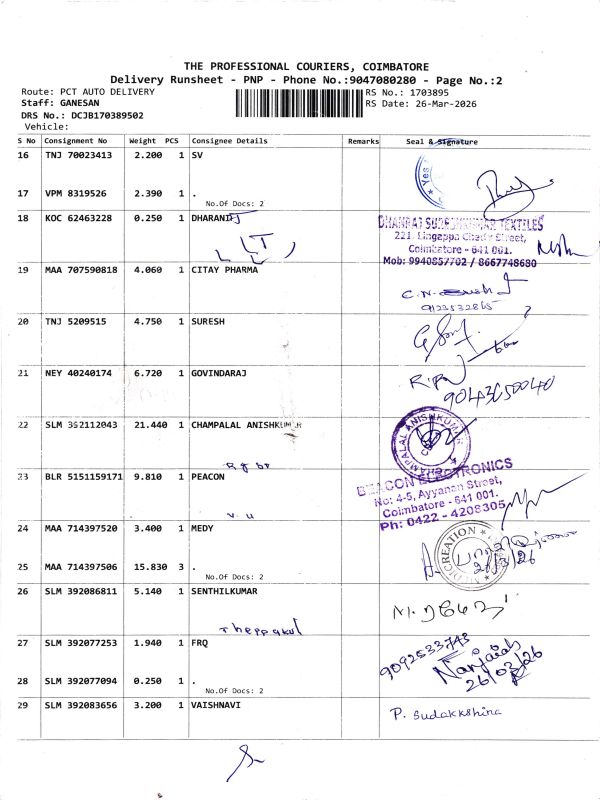 THE PROFESSIONAL COURIERS, COIMBATORE
Delivery Runsheet - PNP - Phone No.:9047080280 - Page No.:2
Route: PCT AUTO DELIVERY
RS No.: 1703895
Staff: GANESAN
RS Date: 26-Mar-2026
DRS No.: DCJB170389502
Vehicle:
S No Consignment No Weight PCS Consignee Details Remarks Seal & Signature
16 TNJ 70023413 2.200 1 SV
Yes
17 VPM 8319526 2.390 1 .
No.Of Docs: 2
18 KOC 62463228 0.250 1 DHARANI
DHANRAJ SURESHKUMAR TEXTILES
221, Lingappa Chetty Street,
Coimbatore - 641 001.
Mob: 9940857702 / 8667748680
19 MAA 707590818 4.060 1 CITAY PHARMA
C.N.
9123532865
20 TNJ 5209515 4.750 1 SURESH
21 NEY 40240174 6.720 1 GOVINDARAJ
9043050040
22 SLM 392112043 21.440 1 CHAMPALAL ANISHKUMAR
CHAMPALAL ANISHKUMAR
23 BLR 5151159171 9.810 1 PEACON
BEACON ELECTRONICS
No: 4-5, Ayyanan Street,
Coimbatore - 641 001.
Ph: 0422 - 4208305
V. U
24 MAA 714397520 3.400 1 MEDY
MEDICREATION
25 MAA 714397506 15.830 3 .
No.Of Docs: 2
26 SLM 392086811 5.140 1 SENTHILKUMAR
Theppakul
27 SLM 392077253 1.940 1 FRQ
9092533743
Nanjaiah
26/03/26
28 SLM 392077094 0.250 1 .
No.Of Docs: 2
29 SLM 392083656 3.200 1 VAISHNAVI
P. Sudakkshina